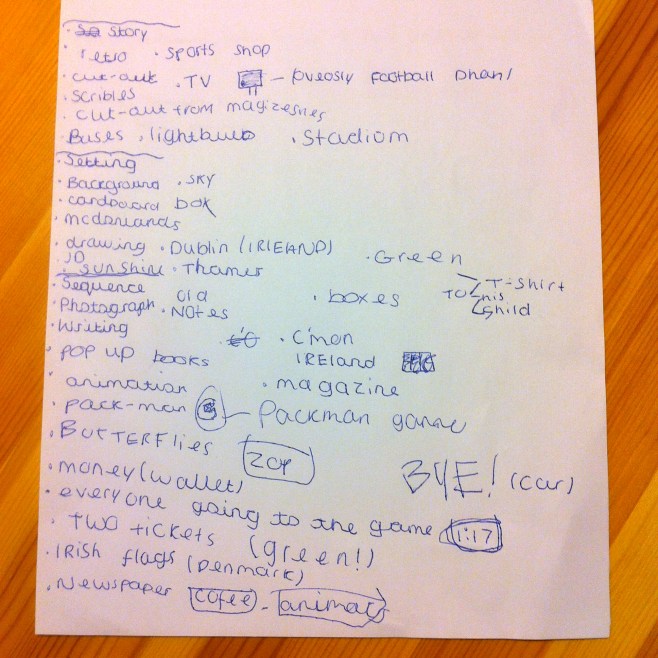 Story
· retro · sports shop
· cut-out · TV – pveosly football phant
· scribles
· cut-out from magizesnes
· Buses · lightbulb · Stadium
· Setting
· Background · SKY
· cardboard box
· mcdonlands
· drawing · Dublin (IRIELAND) · Green
· 3D
· sunshine · Thames
· Sequence · boxes TO T-shirt
· Photograph · old Notes his
· Writing child
· POP UP books · C'mon IRELAND
· animation · magazine
· pack-man – Packman game
· BUTTERFlies
20p
· money (wallet) BYE! (car)
· everyone going to the game 1:17
· TWO tickets (green!)
· IRISH flags (Denmark)
· Newspaper cofee -